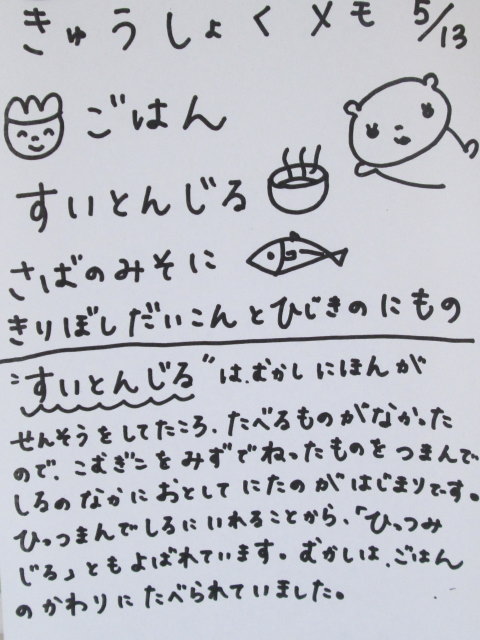 きゅうしょくメモ 5/13
ごはん
すいとんじる
さばのみそに
きりぼしだいこんとひじきのにもの
"すいとんじる"は、むかしにほんが
せんそうをしてたころ、たべるものがなかった
ので、こむぎこをみずでねったものをつまんで
しるのなかにおとしてにたのがはじまりです。
ひっつまんでしるにいれることから、「ひっつみ
じる」ともよばれています。むかしは、ごはん
のかわりにたべられていました。